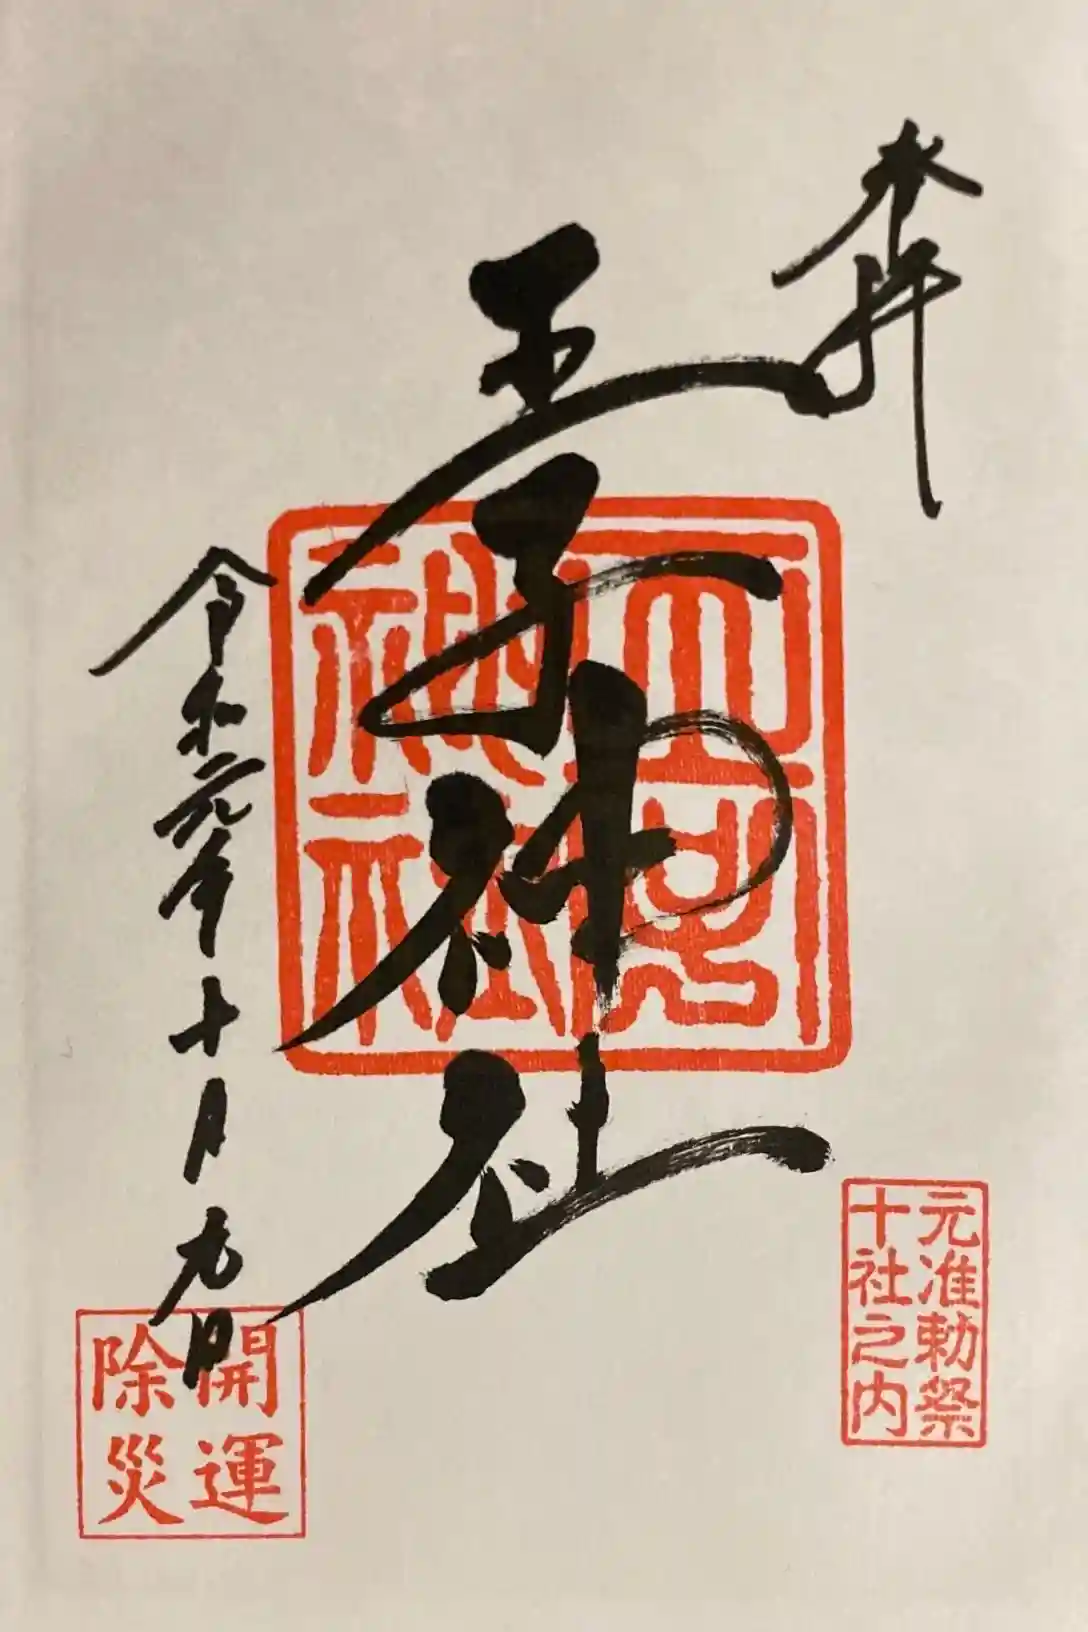 奉拝
王子神社
令和元年十月九日
王子
神社
元准勅祭
十社之内
開運
除災